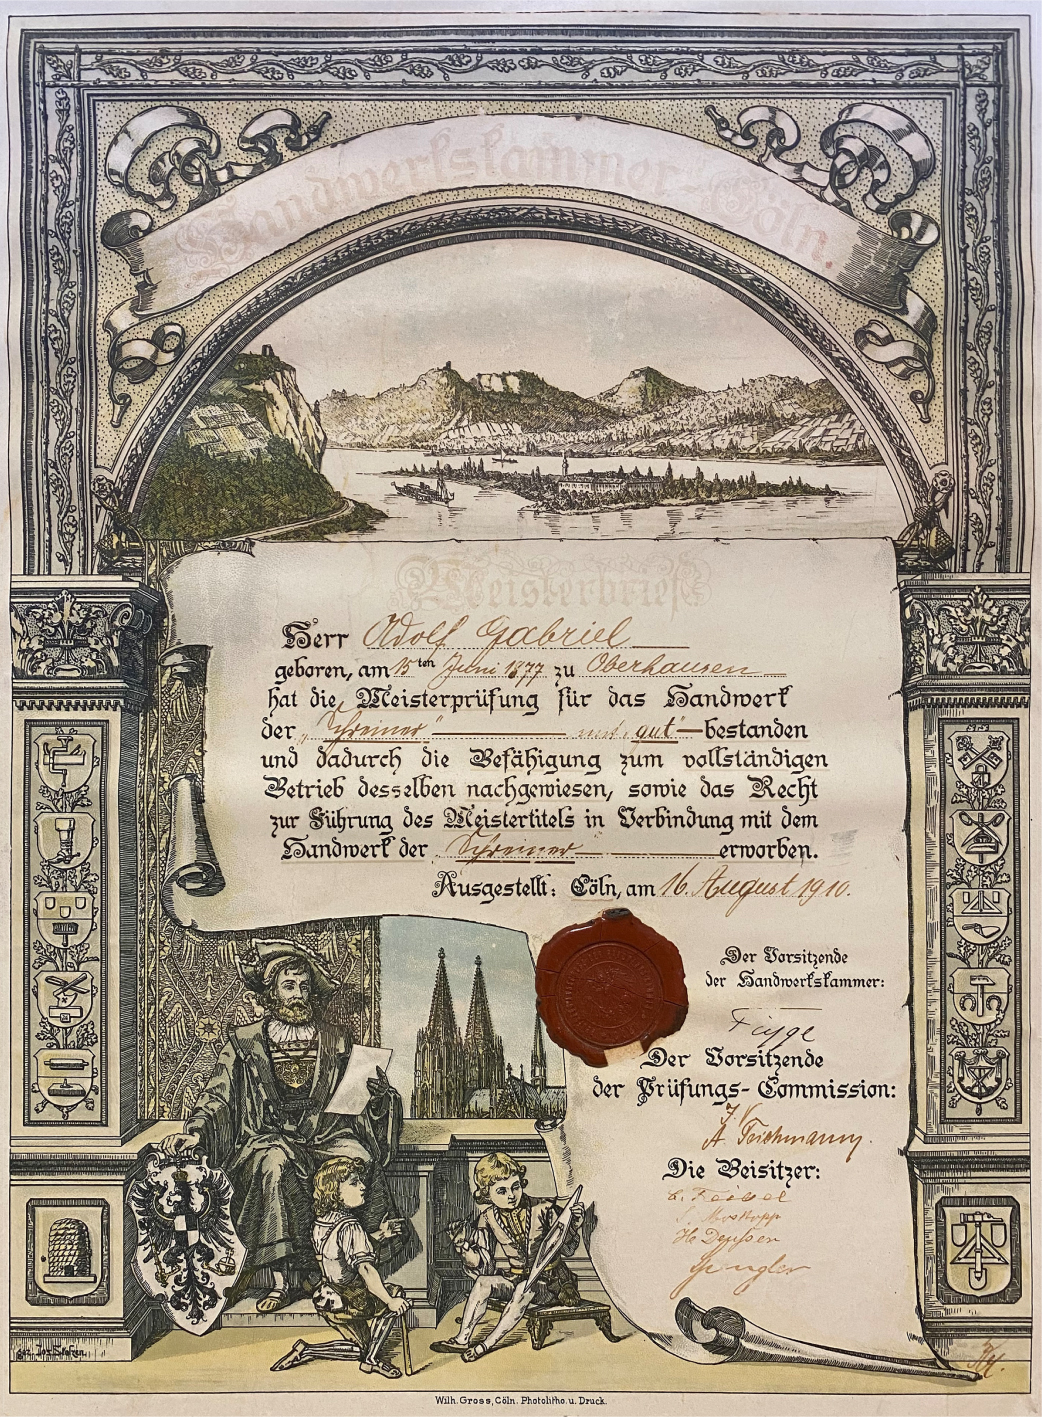 Handwerkskammer-Cöln.
Meisterbrief
Herr Adolf Gabriel
geboren, am 15ten Juni 1877 zu Oberhausen
hat die Meisterprüfung für das Handwerk
der „Schreiner" mit „gut" bestanden
und dadurch die Befähigung zum vollständigen
Betrieb desselben nachgewiesen, sowie das Recht
zur Führung des Meistertitels in Verbindung mit dem
Handwerk der „Schreiner" erworben.
Ausgestellt: Cöln, am 16. August 1910.
Der Vorsitzende
der Handwerkskammer:
Der Vorsitzende
der Prüfungs-Commission:
A. Teichmann
Die Beisitzer:
Wilh. Gross, Cöln. Photolitho. u. Druck.